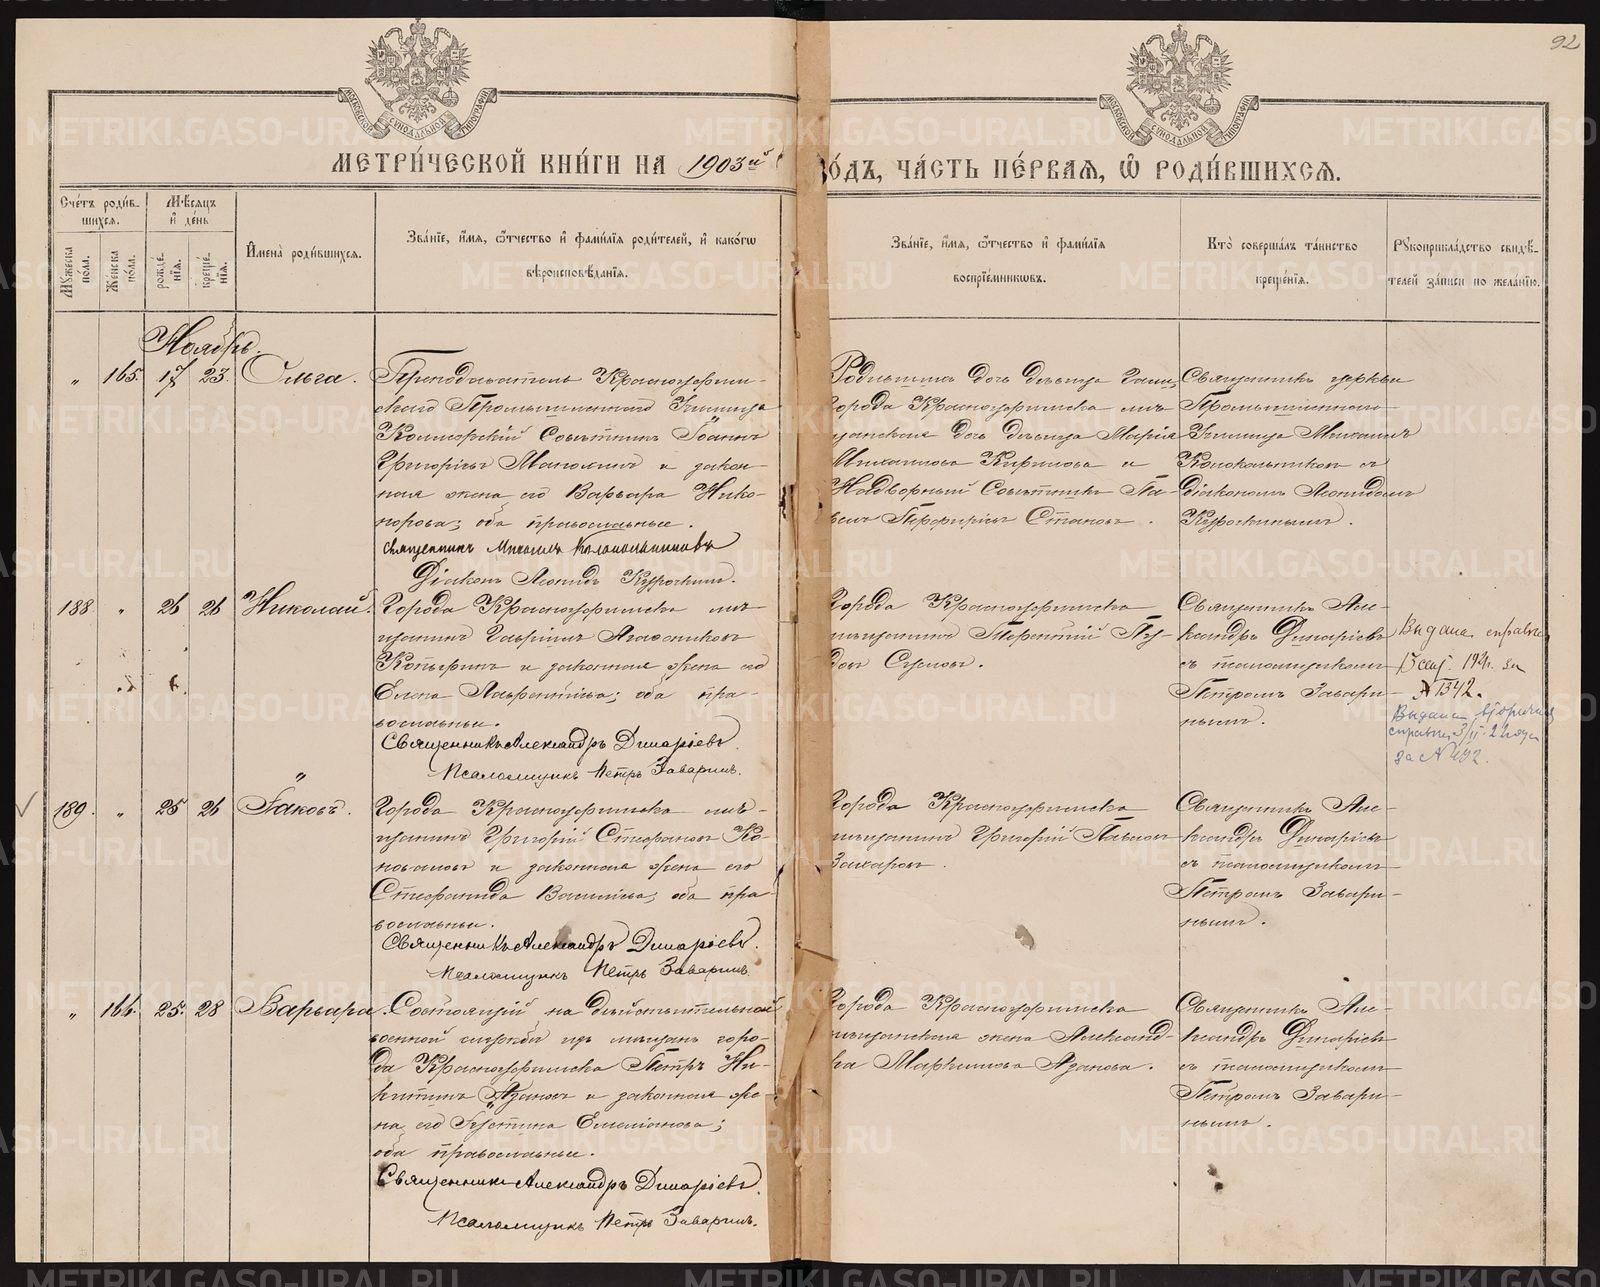 92
МЕТРИ́ЧЕСКОЙ КНИ́ГИ НА 1903й ГО́ДЪ, ЧА́СТЬ ПЕ́РВАЯ, Ѡ РОДИ́ВШИХСЯ.
Сче́тъ роди́вшихся.
Мѣ́сяцъ и де́нь
Мꙋ́жеска по́ла.
Же́нска по́ла.
рожде́нія.
креще́нія.
Имена̀ роди́вшихся.
Зва́ніе, и́мя, ѻ́тчество и фами́лія роди́телей, и како́гѡ
вѣроисповѣ́данія.
Зва́ніе, и́мя, ѻ́тчество и фами́лія
воспріе́мниковъ.
Кто̀ соверша́лъ та́инство
креще́нія.
Рꙋкоприкла́дство свидѣ́-
телей за́писи по жела́нію.
Ноябрь.
„ 165. 17 23. Ольга.
Преподаватель Красноуфим-
скаго Промышленнаго Училища
Коллежскій Совѣтникъ Іоаннъ
Григорьевъ и закон-
ная жена его Варвара Нико-
норова; оба православные.
Священникъ Михаилъ Колокольниковъ
Діаконъ Леонидъ Курочкинъ.
дочь дѣвица
города Красноуфимска мѣ-
щанская дочь дѣвица Марія
Михаилова Кирилова и
Надворный Совѣтникъ Па-
велъ Порфирьевъ
Священникъ церкви
Промышленнаго
Училища Михаилъ
Колокольниковъ съ
діакономъ Леонидомъ
Курочкинымъ.
188 „ 26 26 Николай.
Города Красноуфимска мѣ-
щанинъ Гавріилъ Агаѳониковъ
Копыринъ и законная жена его
Елена Лаврентіева; оба пра-
вославные.
Священникъ Александръ Динаріевъ.
Псаломщикъ Петръ Заваринъ.
Города Красноуфимска
мѣщанинъ Терентій
Священникъ Але-
ксандръ Динаріевъ
съ псаломщикомъ
Петромъ Завари-
нымъ.
Выдана справка
за
№ 1342.
Выдана вторичная
справка
за №
189. „ 25 26 Іаковъ.
Города Красноуфимска мѣ-
щанинъ Григорій Стефановъ Ко-
новаловъ и законная жена его
Стефанида Васильева; оба пра-
вославные.
Священникъ Александръ Динаріевъ.
Псаломщикъ Петръ Заваринъ.
Города Красноуфимска
мѣщанинъ Григорій Павловъ
Захаровъ.
Священникъ Але-
ксандръ Динаріевъ
съ псаломщикомъ
Петромъ Завари-
нымъ.
„ 166. 25. 28 Варвара.
Состоящій на дѣйствительной
военной службѣ изъ мѣщанъ горо-
да Красноуфимска Петръ Ни-
китинъ Азановъ и законная же-
на его Іустина Емеліанова;
оба православные.
Священникъ Александръ Динаріевъ.
Псаломщикъ Петръ Заваринъ.
Города Красноуфимска
мѣщанская жена Александ-
ра Маркелова Азанова.
Священникъ Але-
ксандръ Динаріевъ
съ псаломщикомъ
Петромъ Завари-
нымъ.
METRIKI.GASO-URAL.RU